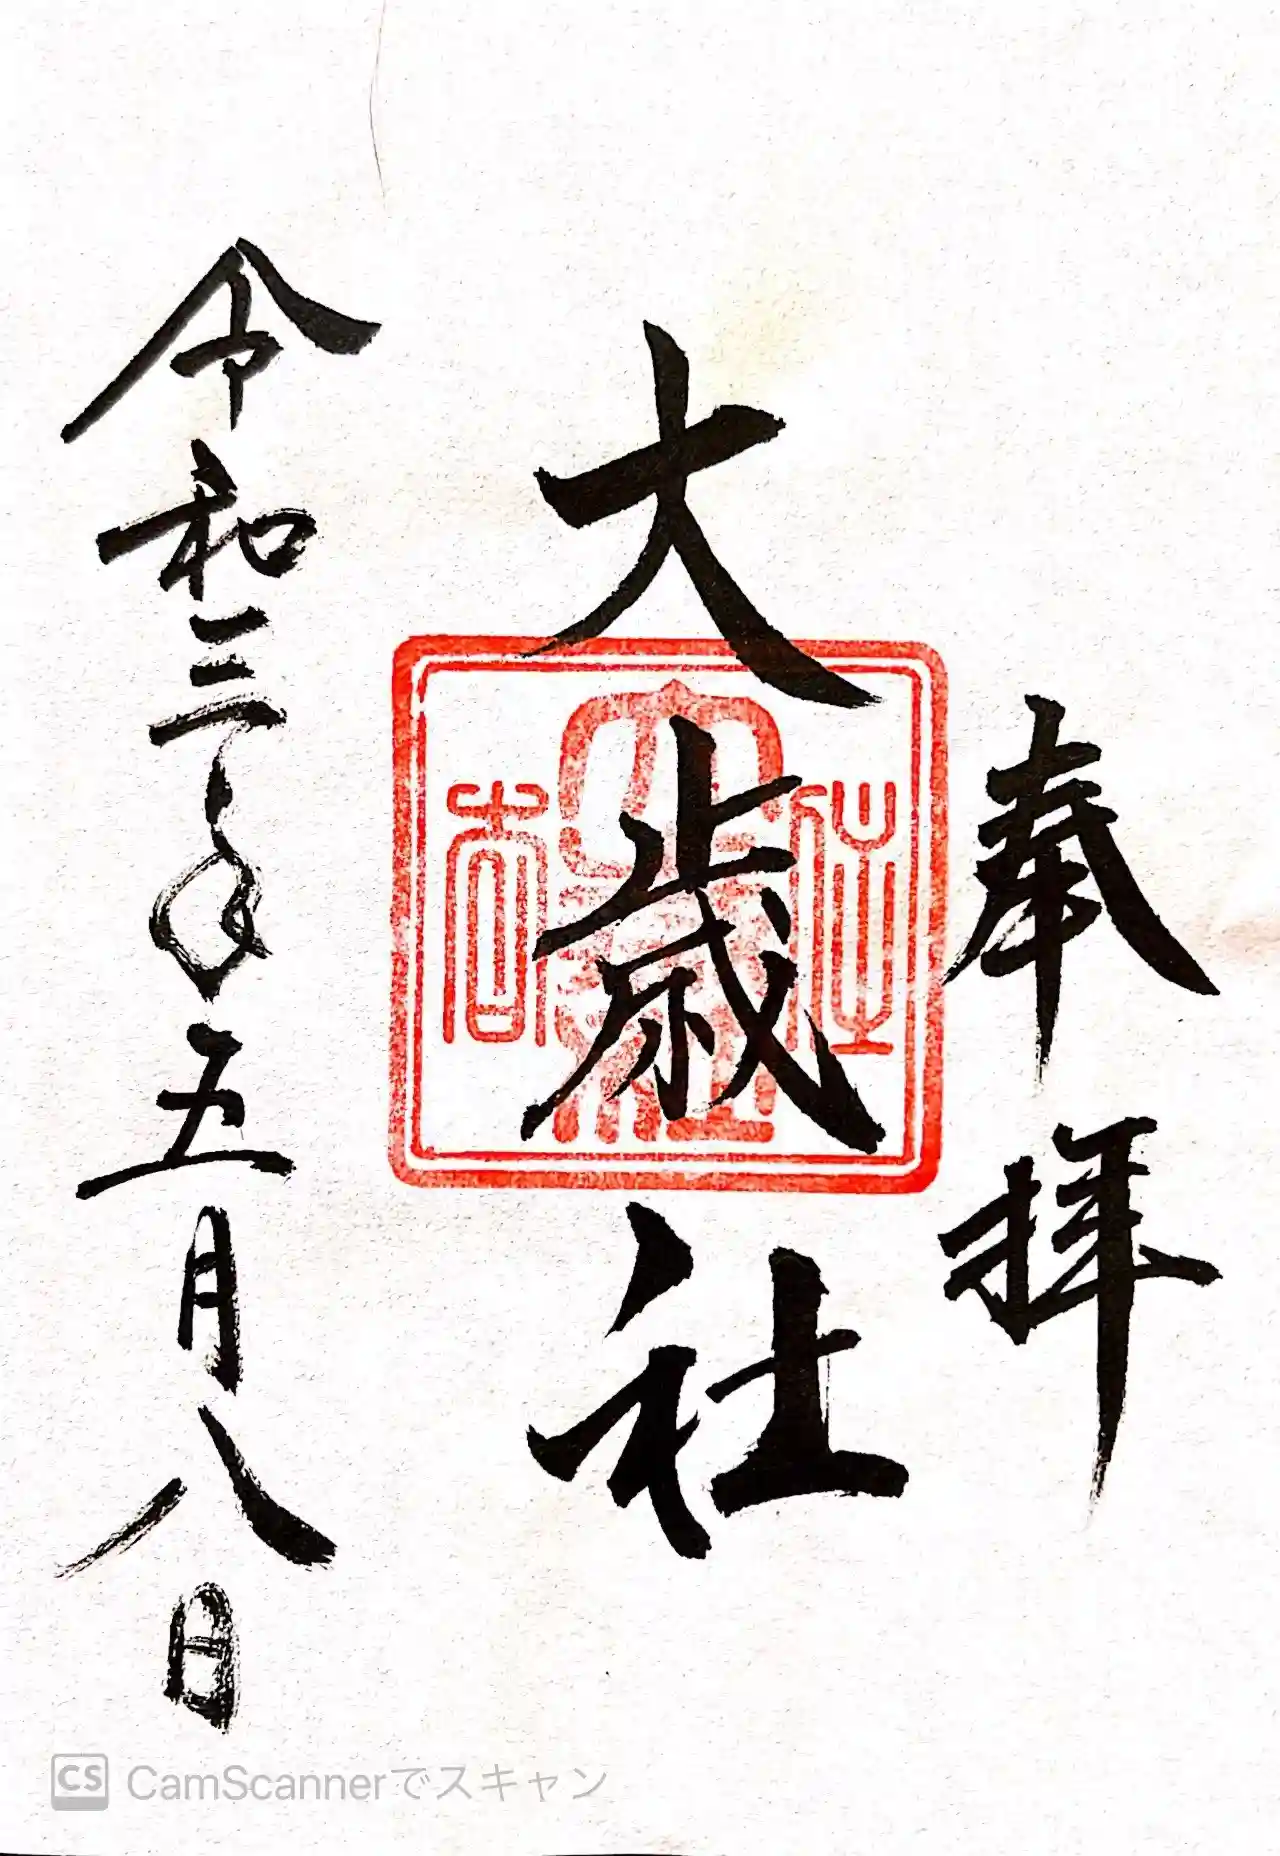 奉拝
大歳社
住
吉
令和三年五月八日
CS CamScannerでスキャン